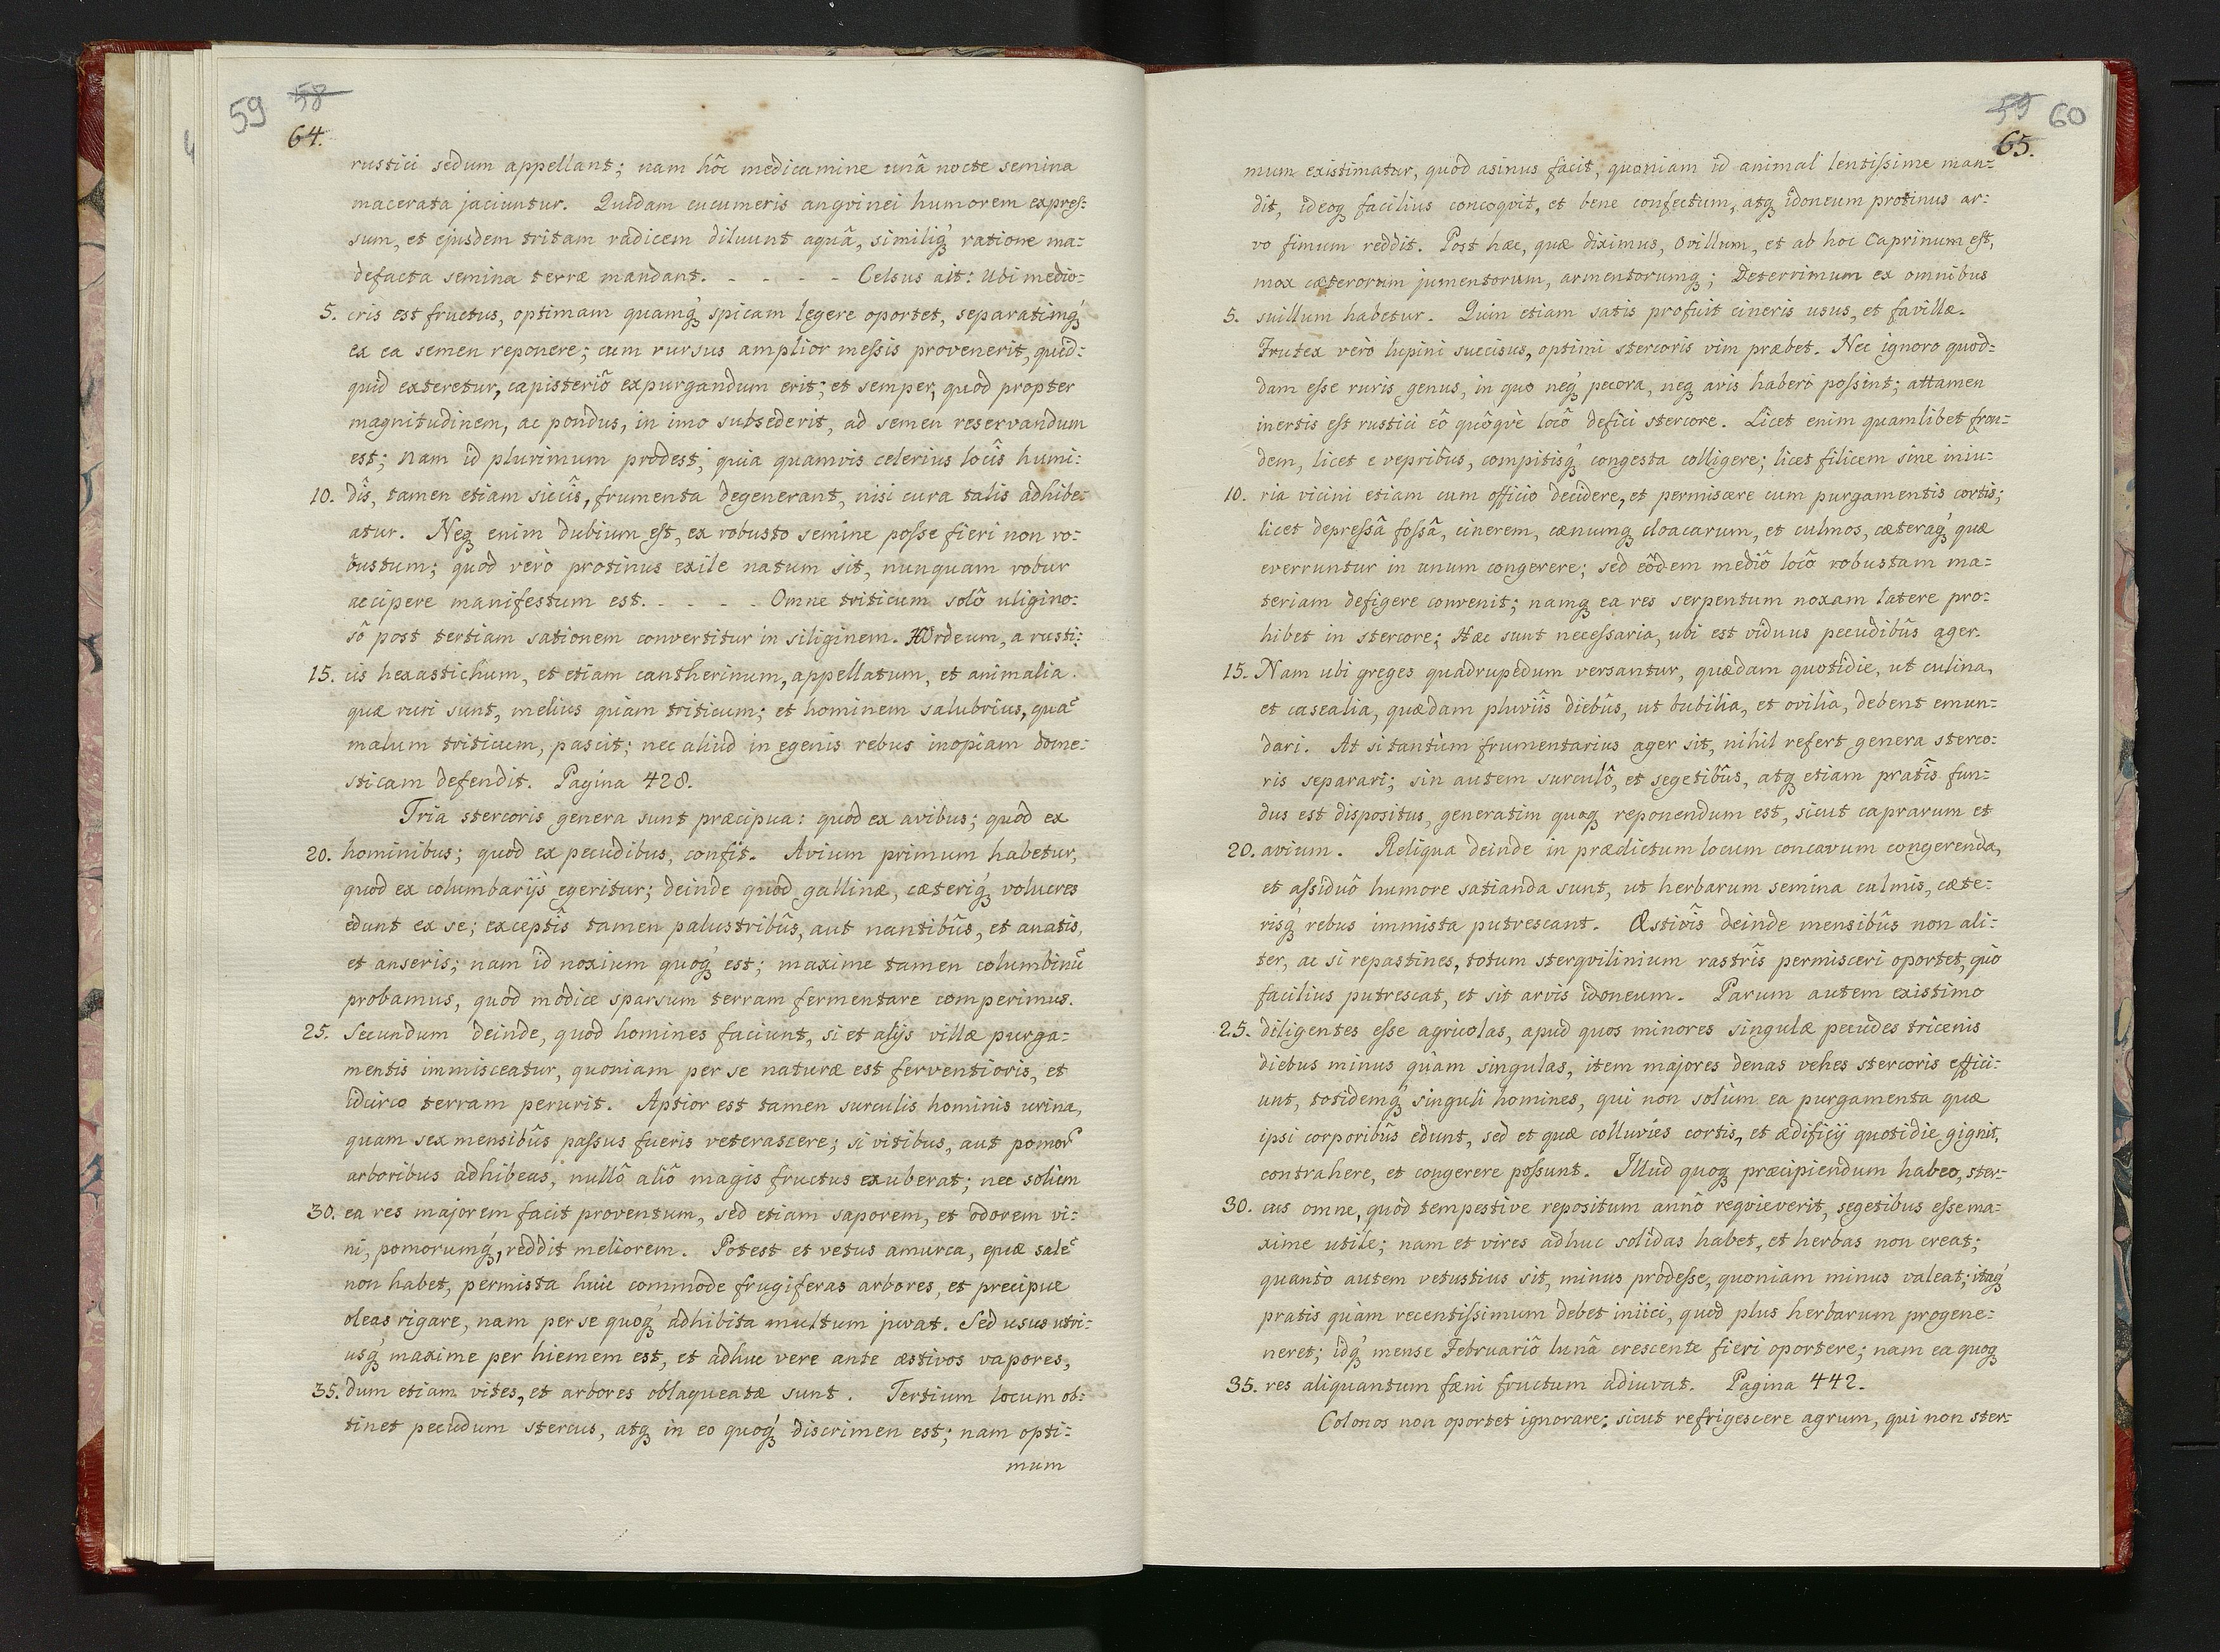 59 58
64.
rustici sedum appellant; nam hôc medicamine unâ nocte semina
macerata jaciuntur. Quidam cucumeris angvinei humorem expreſ:
sum, et ejusdem tritam radicem diluunt aquâ, similiq́ ratione ma:
defacta semina terræ mandant. - - - - Celsus ait: Ubi medio:
5. cris est fructus, optimam quamq́ spicam legere oportet, separatimq́
ex ea semen reponere; cum rursus amplior meſsis provenerit, quid:
quid exteretur, capisteriô expurgandum erit; et semper, quod propter
magnitudinem, ac pondus, in imo subsederit, ad semen reservandum
est; nam id plurimum prodest, quia quamvis celerius locîs humi:
10. dîs, tamen etiam siccîs, frumenta degenerant, nisi cura talis adhibe:
atur. Neq enim dubium eſt, ex robusto semine poſse fieri non ro:
bustum; quod verò protinus exile natum sit, nunquam robur
accipere manifestum est. - - - - Omne triticum solô uligino:
sô post tertiam sationem convertitur in siliginem. Hordeum, a rusti:
15. cis hexastichum, et etiam cantherinum, appellatum, et animalia
quæ ruri sunt, melius quam triticum; et hominem salubrius, quā
malum triticum, pascit; nec aliud in egenis rebus inopiam dome:
sticam defendit. Pagina 428.
Tria stercoris genera sunt præcipua: quod ex avibus; quod ex
20. hominibus; quod ex pecudibus, confit. Avium primum habetur,
quod ex columbarijs egeritur; deinde quod gallinæ, cæteriq́ volucres
edunt ex se; exceptîs tamen palustribûs, aut nantibûs, et anatis,
et anseris; nam id noxium quoq́ est; maxime tamen columbinū
probamus, quod modice sparsum terram fermentare comperimus.
25. Secundum deinde, quod homines faciunt, si et alijs villæ purga:
mentis immisceatur, quoniam per se naturæ est ferventioris, et
idcirco terram perurit. Aptior est tamen surculis hominis urina,
quam sex mensibûs paſsus fueris veterascere; si vitibus, aut pomor
arboribus adhibeas, nullô aliô magis fructus exuberat; nec solùm
30. ea res majorem facit proventum, sed etiam saporem, et odorem vi:
ni, pomorumq́, reddit meliorem. Potest et vetus amurca, quæ salē
non habet, permista huic commode frugiferas arbores, et precipue
oleas rigare, nam per se quoq́ adhibita multum juvat. Sed usus utri:
usq́ maxime per hiemem est, et adhuc vere ante æstivos vapores,
35. dum etiam vites, et arbores oblaqueatæ sunt. Tertium locum ob:
tinet pecudum stercus, atq in eo quoq́ discrimen est; nam opti:
mum
59 60
65.
mum existimatur, quod asinus facit, quoniam id animal lentiſsime man:
dit, ideoq facilius concoqvit, et bene confectum, atq idoneum protinus ar:
vo fimum reddit. Post hæc, quæ diximus, ovillum, et ab hoc Caprinum eſt,
mox cæterorum jumentorum, armentorumq; Deterrimum ex omnibus
5. suillum habetur. Quin etiam satis profuit cineris usus, et favillæ.
Frutex verò lupini succisus, optimi stercoris vim præbet. Nec ignoro quod:
dam eſse ruris genus, in quo neq́ pecora, neq avis haberi poſsint; attamen
inertis eſt rustici eô quôqvè locô defici stercore. Licet enim quamlibet fron:
dem, licet e vepribûs, compitisq́ congesta colligere; licet filicem sine iniu:
10. ria vicini etiam cum officio decidere, et permiscere cum purgamentis cortis;
licet depreſsâ foſsâ, cinerem, cænumq cloacarum, et culmos, cæteraq́ quæ
everruntur in unum congerere; sed eôdem mediô locô robustam ma:
teriam defigere convenit; namq ea res serpentum noxam latere pro:
hibet in stercore; Hæc sunt neceſsaria, ubi est viduus pecudibûs ager.
15. Nam ubi greges quadrupedum versantur, quædam quotidie, ut culina,
et casealia, quædam pluviîs diebûs, ut bubilia, et ovilia, debent emun:
dari. At si tantùm frumentarius ager sit, nihil refert genera sterco:
ris separari; sin autem surculô, et segetibûs, atq etiam pratîs fun:
dus est dispositus, generatim quoq reponendum est, sicut caprarum et
20. avium. Reliqua deinde in prædictum locum concavum congerenda,
et aſsiduô humore satianda sunt, ut herbarum semina culmis, cæte:
risq́ rebus immista putrescant. Æstivîs deinde mensibûs non ali:
ter, ac si repastines, totum stergvilinium rastrîs permisceri oportet, quò
facilius putrescat, et sit arvis idoneum. Parum autem existimo
25. diligentes eſse agricolas, apud quos minores singulæ pecudes tricenis
diebus minus quàm singulas, item majores denas vehes stercoris effici:
unt, totidemq́ singuli homines, qui non solùm ea purgamenta quæ
ipsi corporibûs edunt, sed et quæ colluvies cortis, et ædificij quotidie gignit,
contrahere, et congerere poſsunt. Illud quoq præcipiendum habeo, ster:
30. cus omne, quod tempestive repositum annô reqvieverit, segetibus eſse ma:
xime utile; nam et vires adhuc solidas habet, et herbas non creat;
quantò autem vetustius sit, minus prodeſse, quoniam minus valeat; itaq́
pratis quàm recentiſsimum debet iniici, quod plus herbarum progene:
neret; idq́ mense Februariô lunâ crescente fieri oportere; nam ea quoq
35. res aliquantum fæni fructum adiuvat. Pagina 442.
Colonos non oportet ignorare; sicut refrigescere agrum, qui non ster: